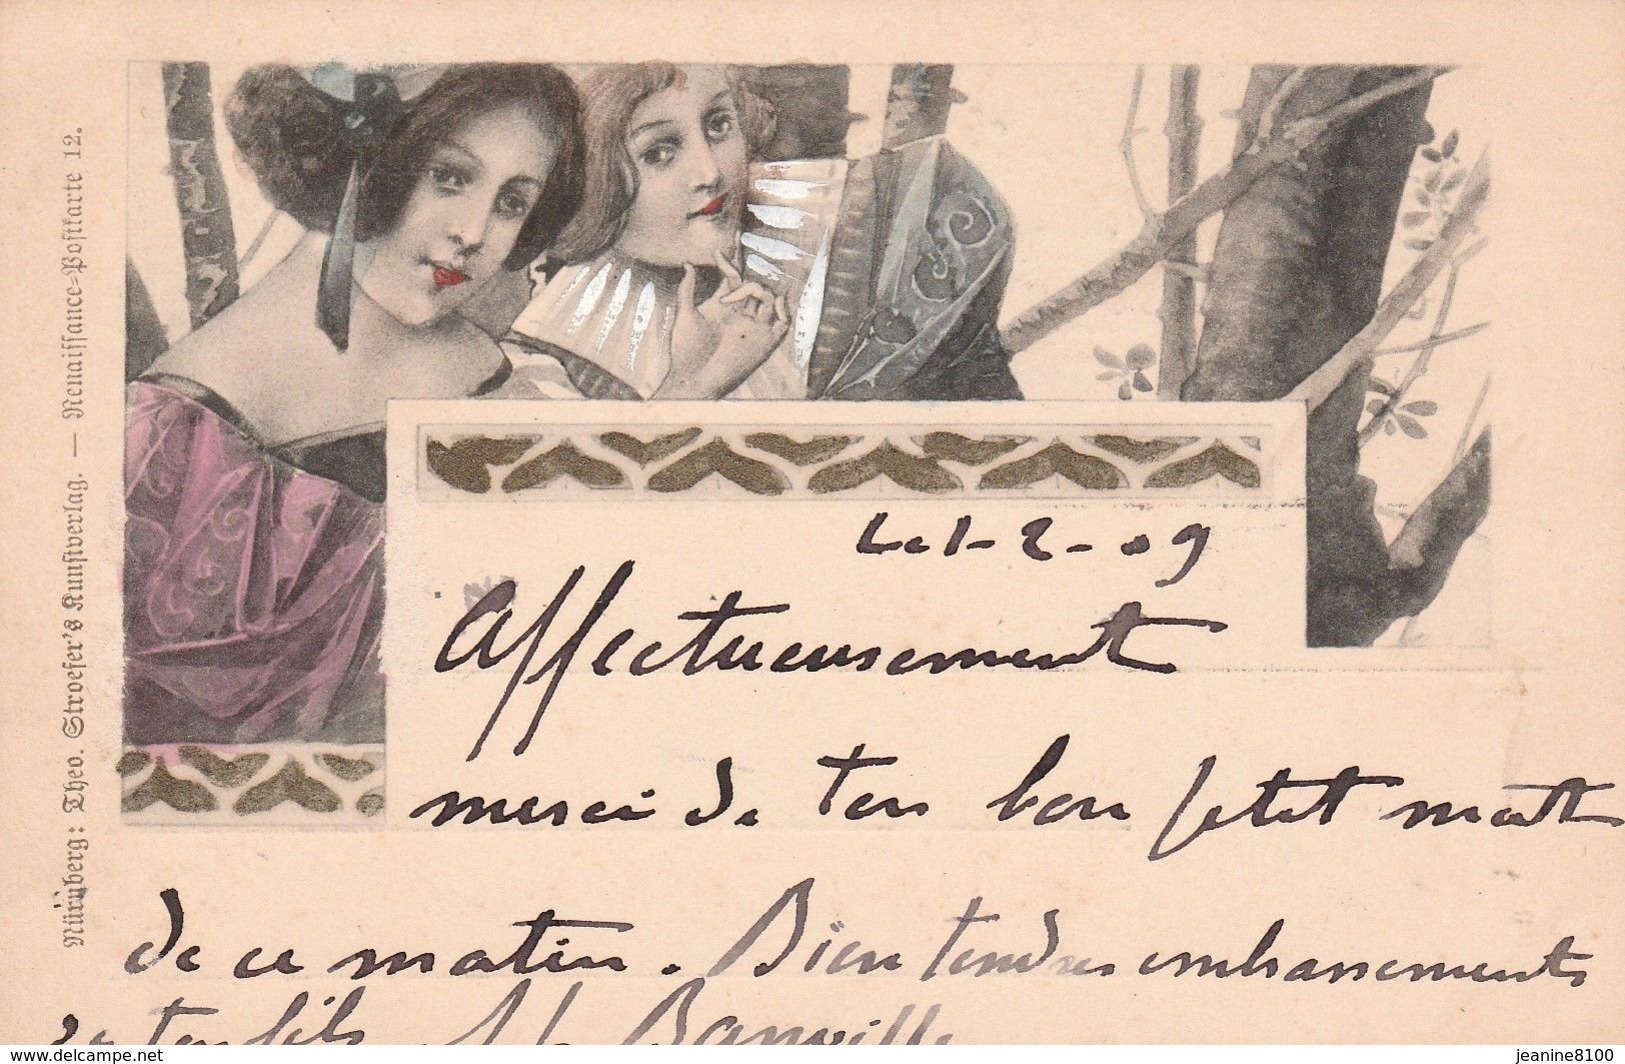 Nürnberg: Theo. Stroefer's Kunstverlag. — Renaissance=Postkarte 12.
Le 1-2-09
Affectueusement
merci de ton bon petit mot
de ce matin. Bien tendres embrassements
de ton fils
Banville
www.delcampe.net
jeanine8100